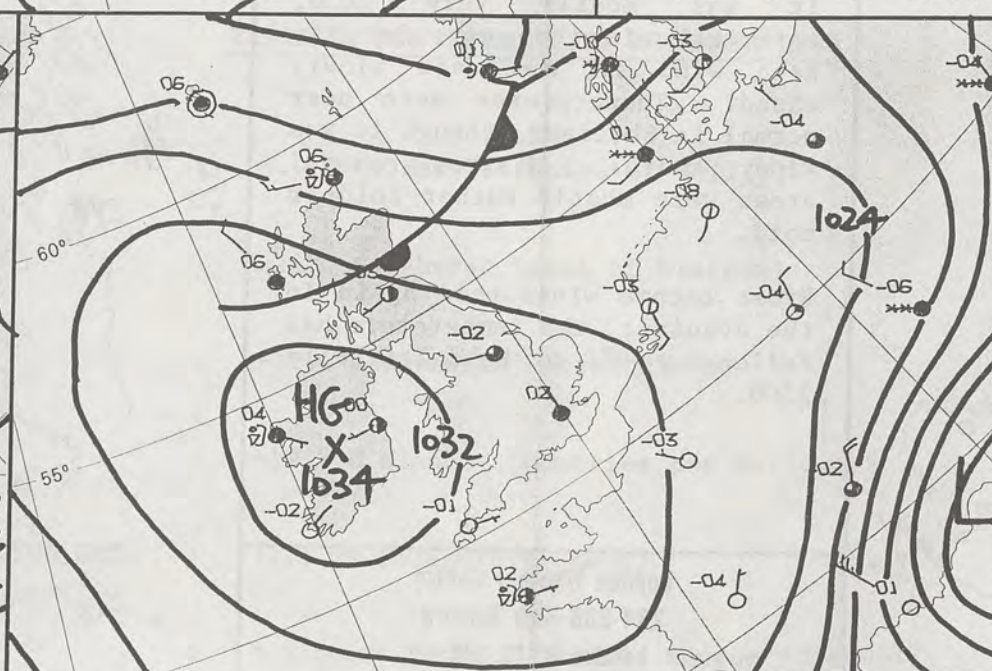 01
-00
-03
-04
06
-04
01
06
-08
1024
60°
06
-03
-04
-06
-02
HG 00
04
X
1034
1032
02
-03
55°
-02
-01
-02
02
-04
-01